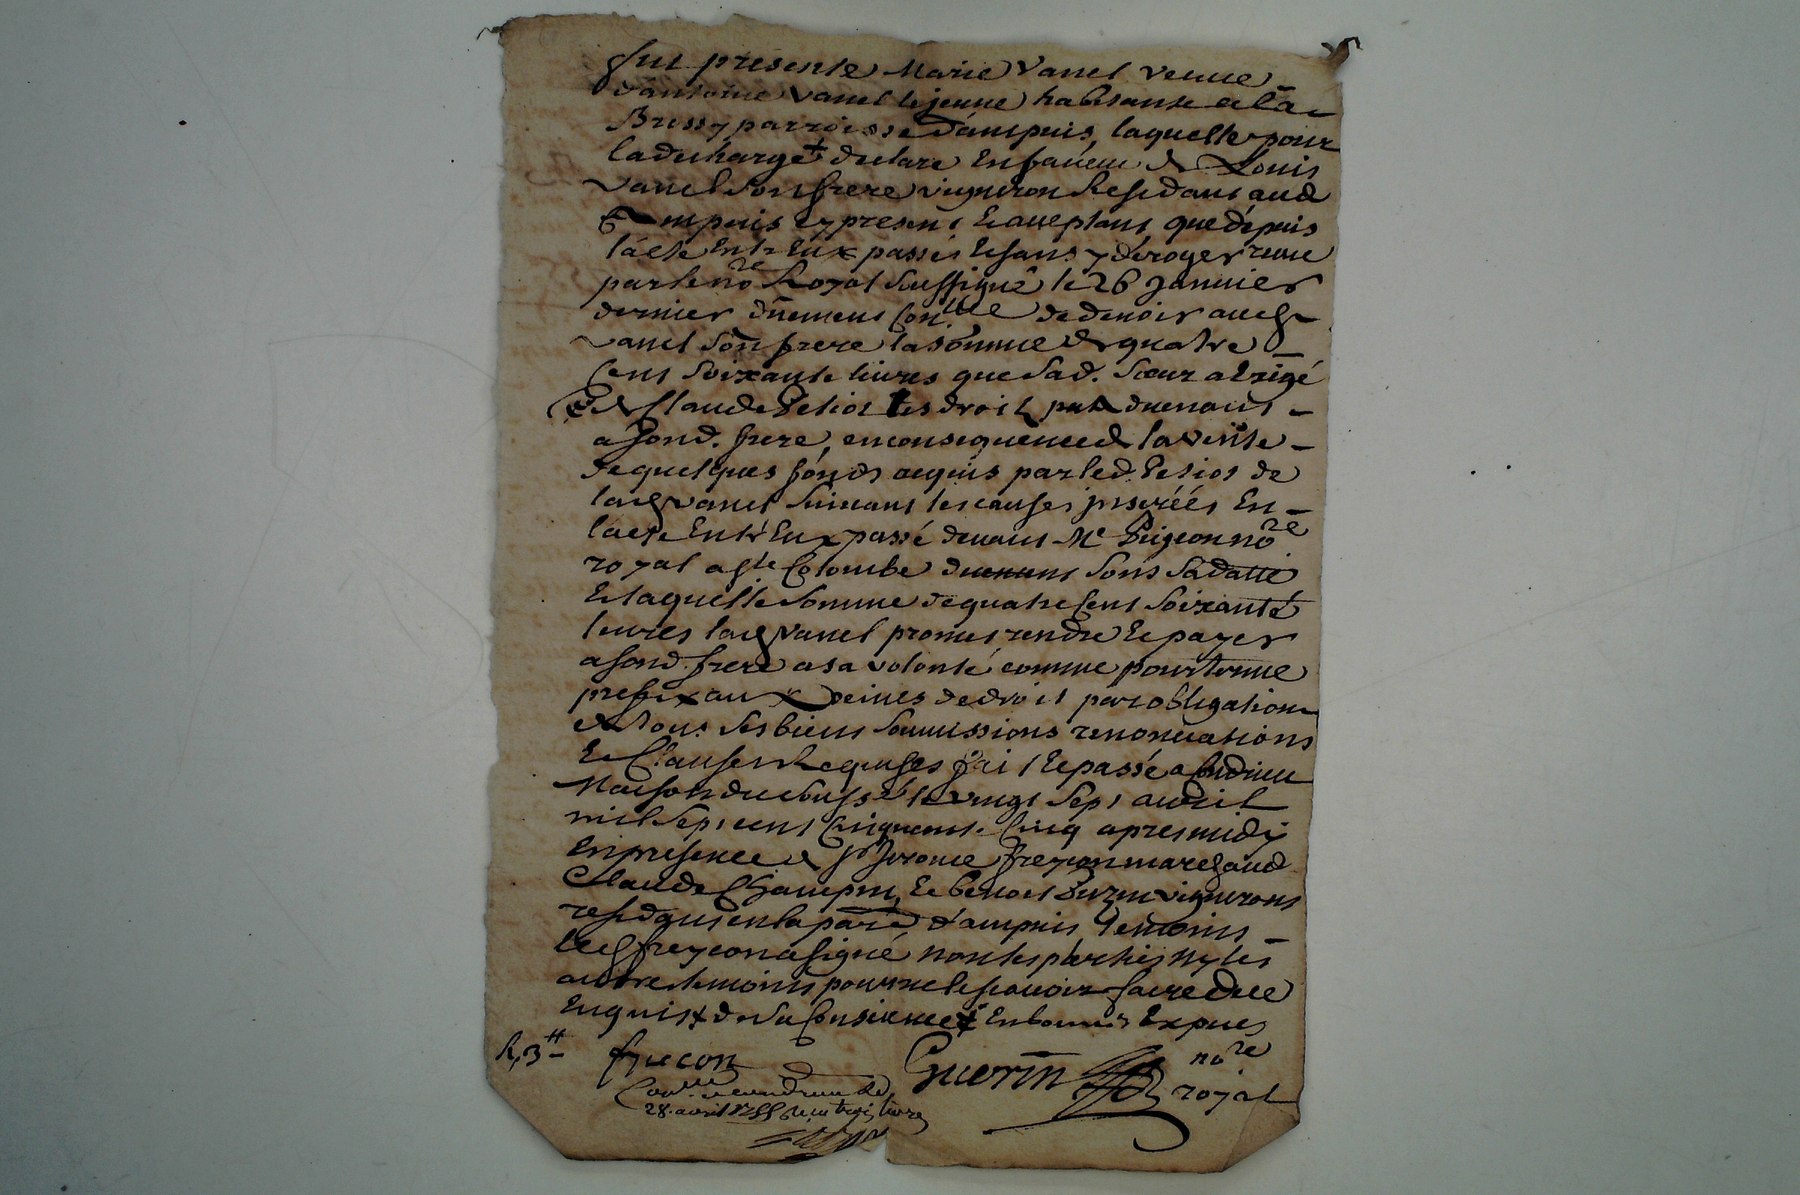 fut presente Marie Vanel veuve
d'antoine Vanel le jeune habitante a la
Brossy parroisse d'ampuis, laquelle pour
la decharge + declare En faveur de Louis
Vanel son frere vigneron Residant aud
Ampuis cy present Et acceptant que depuis
l'acte Entr Eux passés Et sans y deroger receu
par le no.re Royal soussigné le 26 janvier
dernier düement Con.llé de devoir aud
vanel son frere la somme de quatre
Cent soixante livres que sad. sœur a Exigé
de Claude Petiot les droits
a sond. frere, en consequence de la vente
de quelques fonds acquis par led. Petiot de
lad vanel suivant les causes inserées En
l'acte Entr Eux passé devant Me Pigeon no.re
royal a Ste Colombe sous sa datte
Et laquelle somme de quatre Cent soixante
livres lad vanel promet rendre Et payer
a sond. frere a sa volonté comme pour terme
prefix aux peines de droit par obligation
de tous ses biens soumissions renonciations
Et Clauses Requises fait Et passé a Condrieu
Maison du le vingt sept avril
mil sept cent Cinquante Cinq apres midy
En presence de Sr Jerome freycon marchand
Claude Champin, Et benoit vignerons
residants en la par.se d'ampuis temoins
led freycon a signé non les parties ny les
autres temoins pour ne le scavoir faire de ce
Enquis + de sa Consience + En
R, 3 ₶
freycon
Guerin no.re
royal
Con.llé a condrieu le
28. avril 1755 Recu trois livres